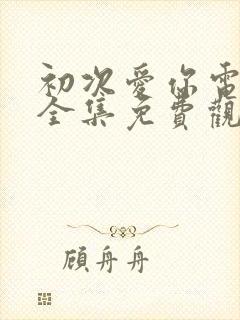 初次愛你電
全集免費觀
顧舟舟